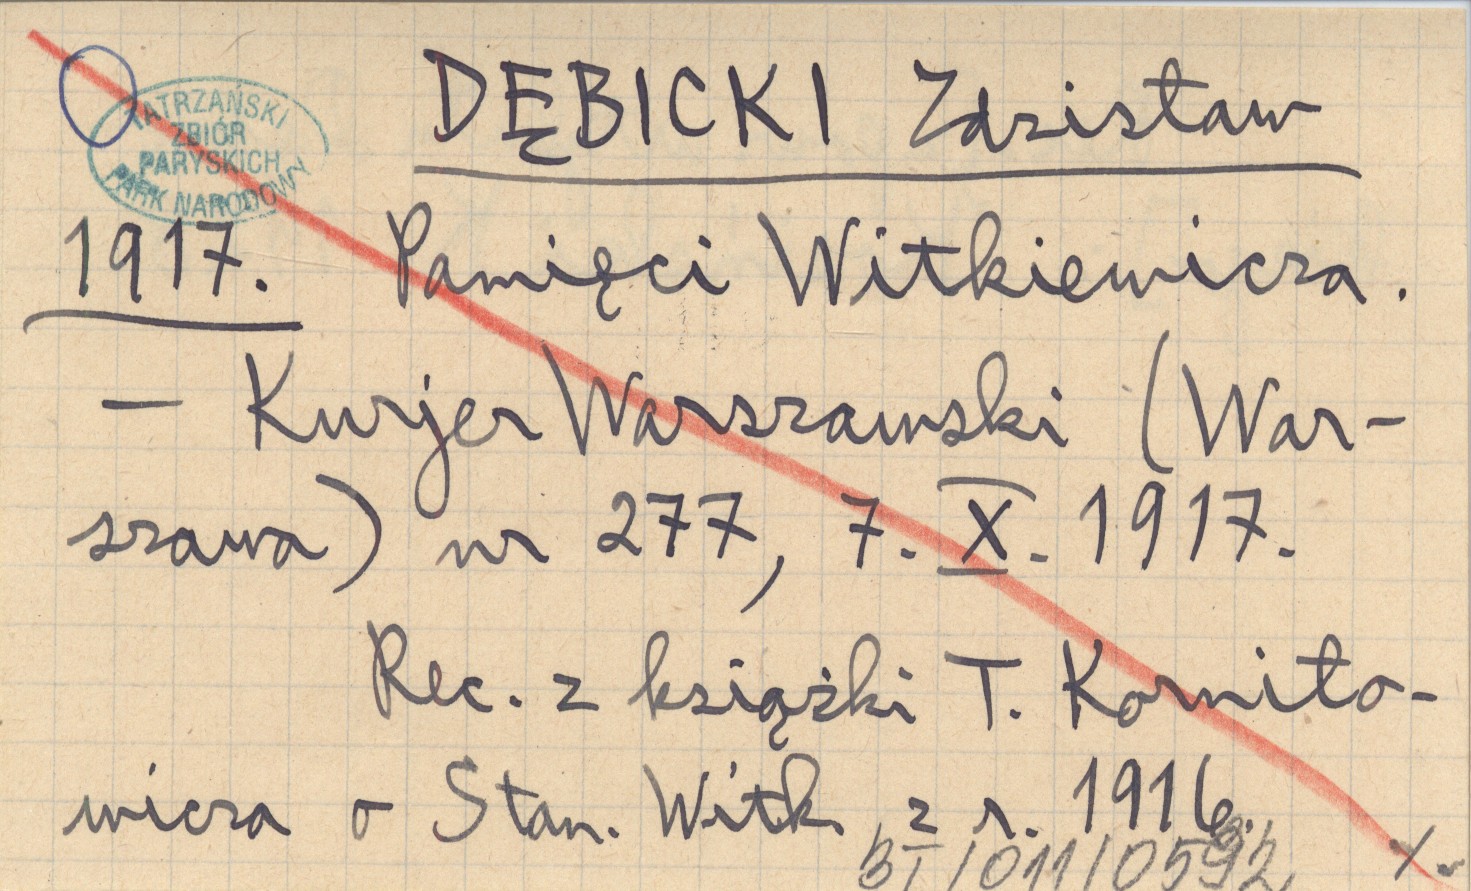 DĘBICKI Zdzisław
TATRZAŃSKI
ZBIÓR
PARYSKICH
PARK NARODOWY
1917. Pamięci Witkiewicza.
— Kurjer Warszawski (War-
szawa) nr 277, 7. X. 1917.
Rec. z książki T. Korniło-
wicza o Stan. Witk. z r. 1916.
BT/011/0592
./.